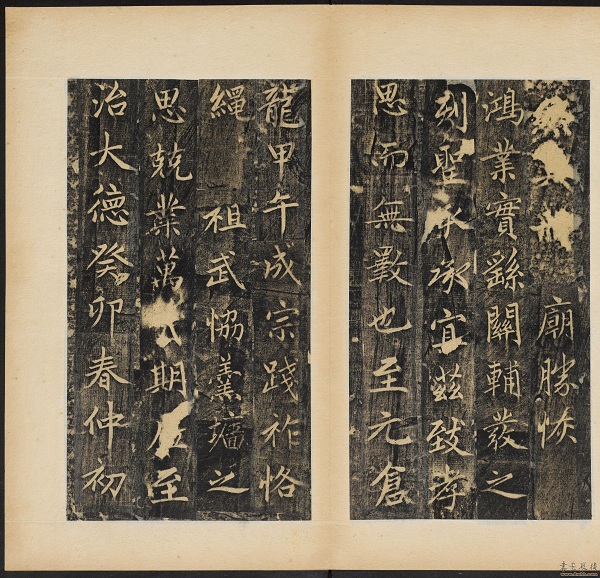 廟勝恢
鴻業實繇關輔發之
列聖承承宜茲致孝
思而無斁也至元倉
龍甲午成宗踐祚恪
繩 祖武恊羹牆之
思兢業萬期至
治大德癸卯春仲初